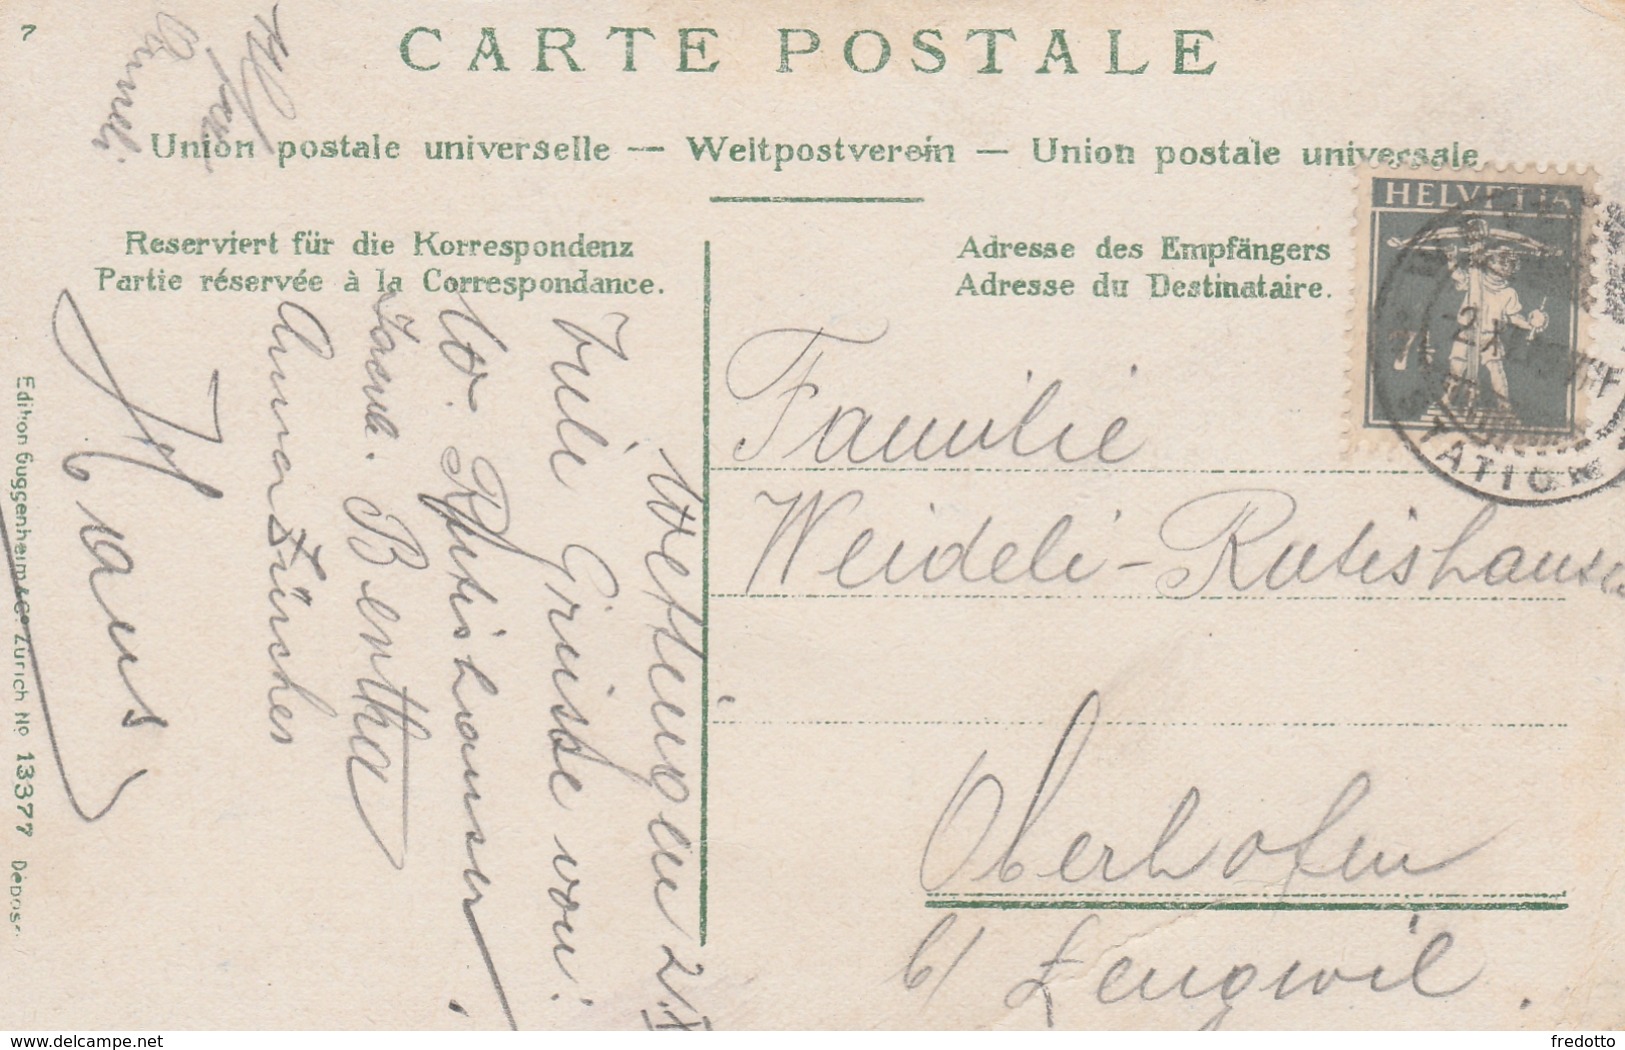 7
CARTE POSTALE
Union postale universelle — Weltpostverein — Union postale universale
Reserviert für die Korrespondenz
Partie réservée à la Correspondance.
Adresse des Empfängers
Adresse du Destinataire.
HELVETIA
7½
STATION
Familie
Weideli-Rutishauser
Oberhofen
b/ Lengwil.
Viele Grüsse von:
W. Rutishauser.
Bertha
Zürcher
Edition Guggenheim & Co. Zürich No 13377 Depose
delcampe.net
fredotto